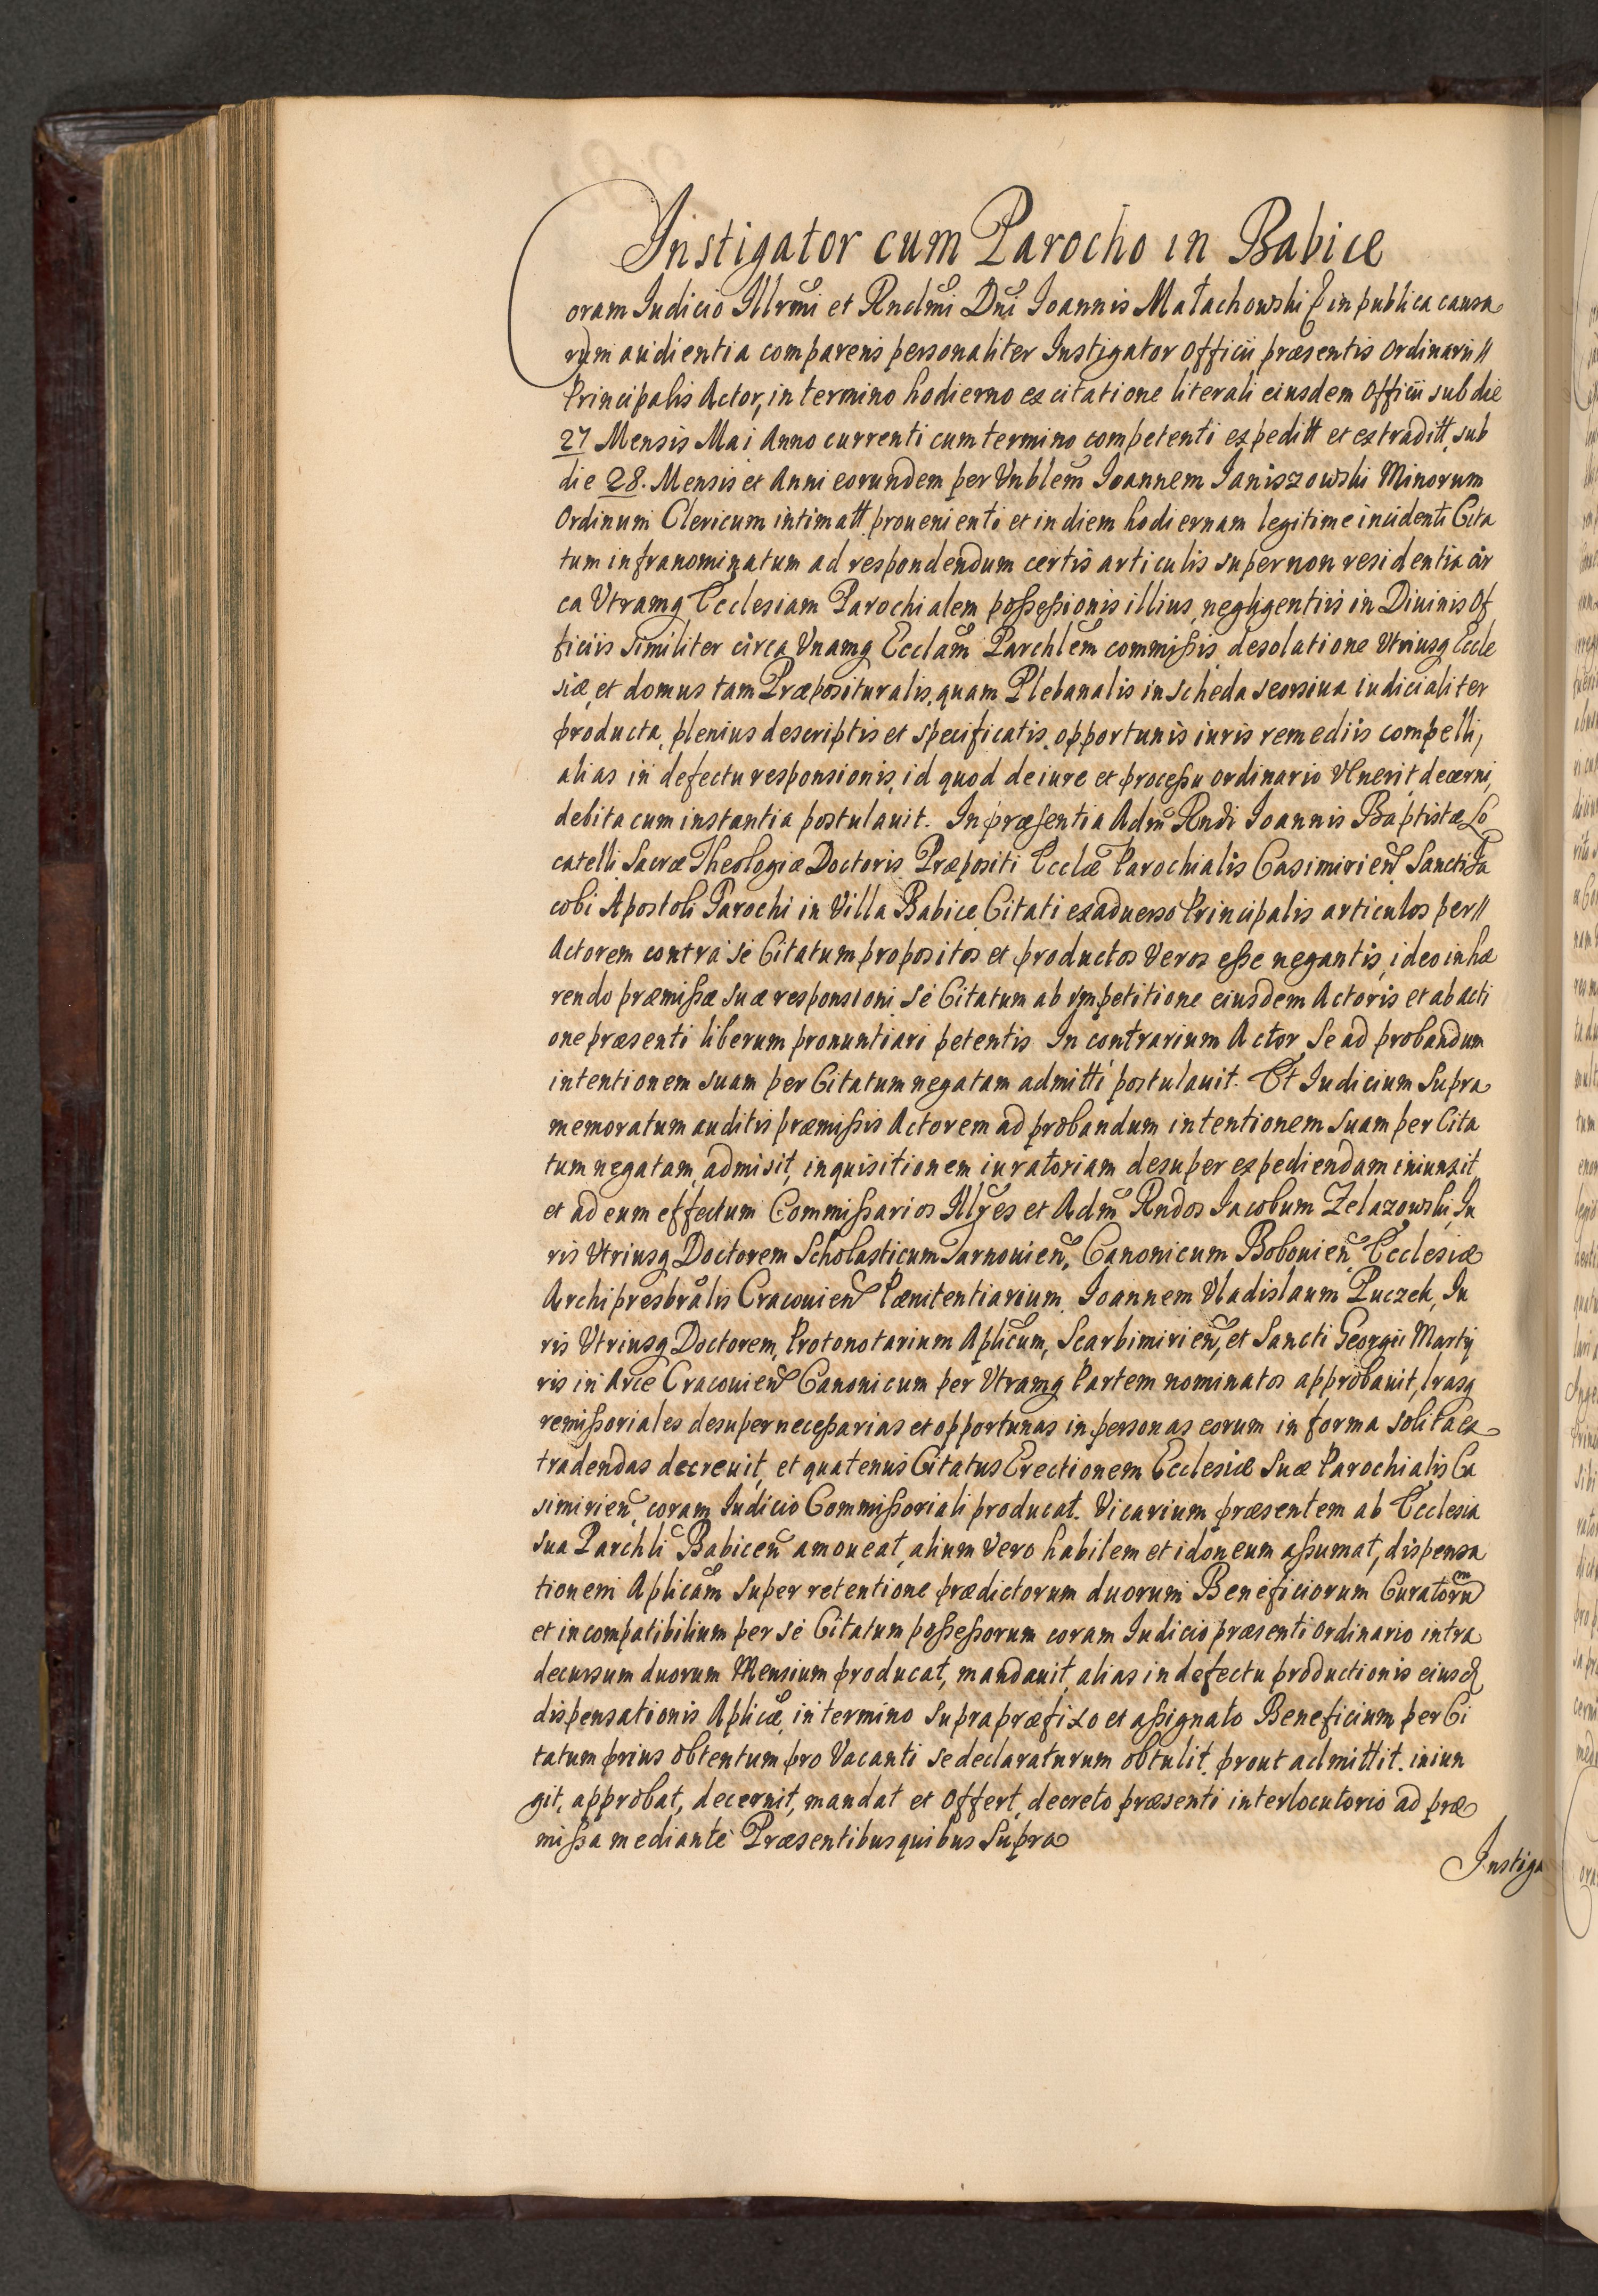 Instigator cum Parocho in Babice
Coram Iudicio Illrmi et Rndmi Dni Ioannis Małachowski & in publica causa
rum audientia comparens personaliter Instigator Officii præsentis Ordinarii //
Principalis Actor, in termino hodierno ex citatione literali eiusdem Officii sub die
27 Mensis Mai Anno currenti cum termino competenti expeditt et extraditt, sub
die 28. Mensis et Anni eorundem per Vnblem Ioannem Ianiszowski Minorum
Ordinum Clericum intimatt prouenienti et in diem hodiernam legitime incidenti Cita
tum infranominatum ad respondendum certis articulis super non residentia cir
ca Vtramq Ecclesiam Parochialem possessionis illius, negligentiis in Diuinis Of
ficiis similiter circa Vnamq Ecclam Parchlem commissis, desolatione Vtriusq Eccle
siæ, et domus tam Præposituralis, quam Plebanalis in scheda seorsiua iudicialiter
producta, plenius descriptis et specificatis, opportunis iuris remediis compelli,
alias in defectu responsionis, id quod de iure et processu ordinario Vlnerit decerni,
debita cum instantia postulauit. In præsentia Adm Rndi Ioannis Baptistæ Lo
catelli Sacræ Theologiæ Doctoris Præpositi Ecclæ Parochialis Casimirien Sancti Ia
cobi Apostoli Parochi in Villa Babice Citati ex aduerso Principalis articulos per //
Actorem contra se Citatum propositos et productos Veros esse negantis, ideo inhæ
rendo præmissæ suæ responsioni se Citatum ab ympetitione eiusdem Actoris et ab acti
one præsenti liberum pronuntiari petentis In contrarium Actor Se ad probandum
intentionem suam per Citatum negatam admitti postulauit. Et Iudicium Supra
memoratum auditis præmissis Actorem ad probandum intentionem suam per Cita
tum negatam, admisit, inquisitionem iuratoriam desuper expediendam iniunxit
et ad eum effectum Commissarios Illres et Adm Rndos Iacobum Zelazowski, Iu
ris Vtriusq Doctorem Scholasticum Tarnouien, Canonicum Bobouien, Ecclesiæ
Archipresbralis Cracouien Pænitentiarium, Ioannem Vladislaum Puczek, Iu
ris Vtriusq Doctorem, Protonotarium Aplicum, Scarbimirien, et Sancti Georgii Marty
ris in Arce Cracouien Canonicum per Vtramq Partem nominatos approbauit, lrasq
remissoriales desuper necessarias et opportunas in personas eorum in forma solita ex
tradendas decreuit, et quatenus Citatus Erectionem Ecclesiæ Suæ Parochialis Ca
simirien, coram Iudicio Commissoriali producat. Vicarium præsentem ab Ecclesia
sua Parchli Babicen amoueat, alium Vero habilem et idoneum assumat, dispensa
tionem Aplicam super retentione prædictorum duorum Beneficiorum Curatorum
et incompatibilium per se Citatum possessorum coram Iudicio præsenti Ordinario intra
decursum duorum Mensium producat, mandauit, alias in defectu productionis eiusd
dispensationis Aplicæ, in termino supra præfixo et assignato Beneficium per Ci
tatum prius obtentum pro Vacanti se declaraturum obtulit, prout admittit, iniun
git, approbat, decernit, mandat et offert, decreto præsenti interlocutorio ad præ
missa mediante Præsentibus quibus Supra
Instiga